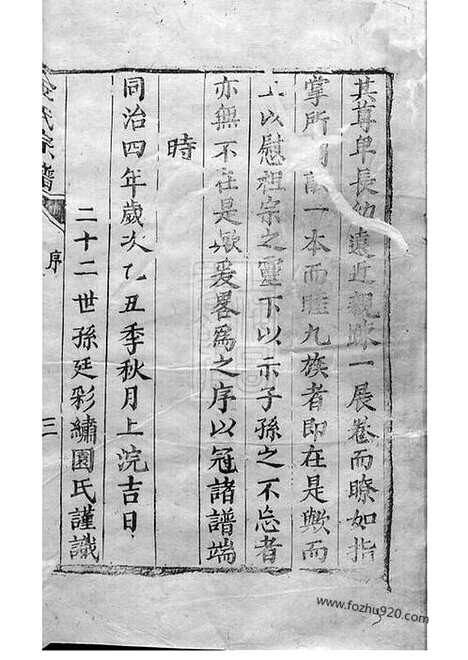 其尊卑長幼遠近親疎一展卷而瞭如指
掌所謂敵一本而睦九族者即在是歟而
上以慰祖宗之靈下以示子孫之不忘者
亦無不在是歟爰畧爲之序以冠諸譜端
時
同治四年歲次乙丑季秋月上浣吉日
二十二世孫廷彩繡園氏謹識
氏宗譜
序
三
www.fozhu920.com